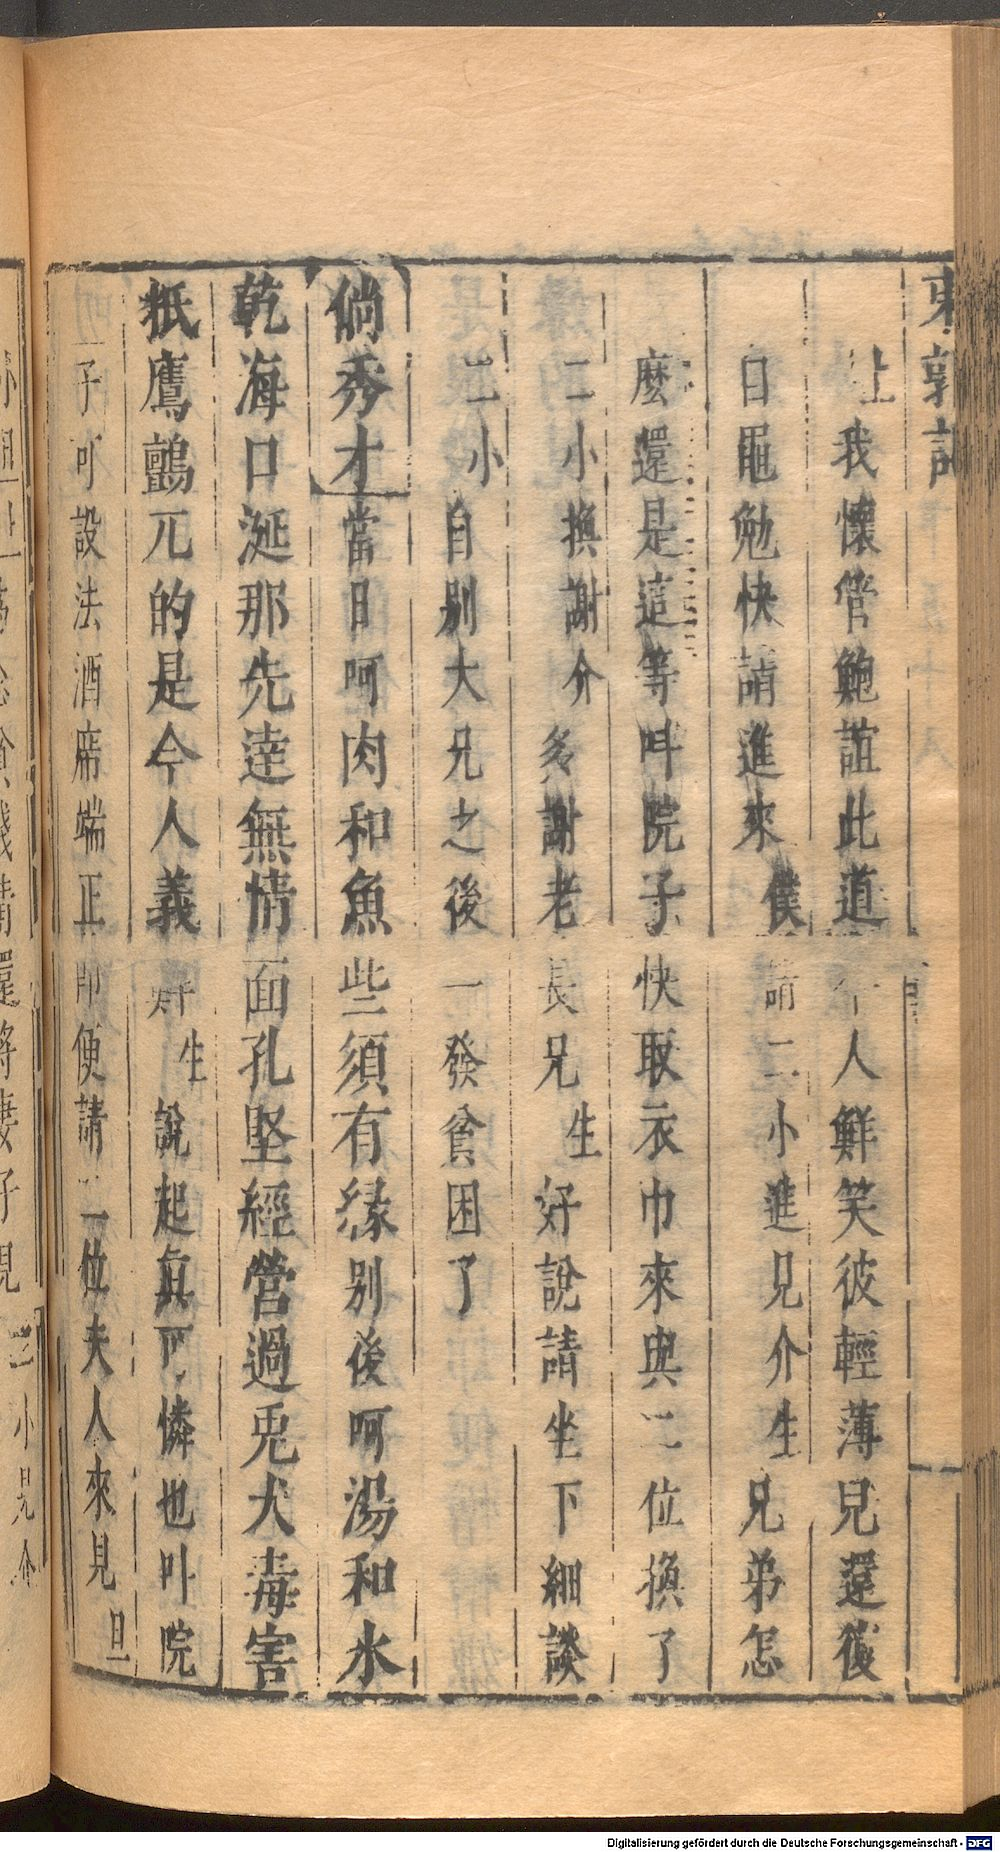 東郭記
上我懷管鮑誼此道今人鮮笑彼輕薄兒還復
曰黽勉快請進來僕請二小進見介生兄弟怎
麼還是這等叫院子快取衣巾來與二位換了
二小換謝介多謝老長兄生好說請坐下細談
二小自别大兄之後一發貧困了
倘秀才當日呵肉和魚些須有縁别後呵湯和水
乾海口涎那先達無情面孔堅經營過兎犬毒害
抵鷹鸇兀的是今人義
生說起眞可憐也叫院
子可設法酒席端正即便請二位夫人來見旦
小見介
Digitalisierung gefördert durch die Deutsche Forschungsgemeinschaft - DFG